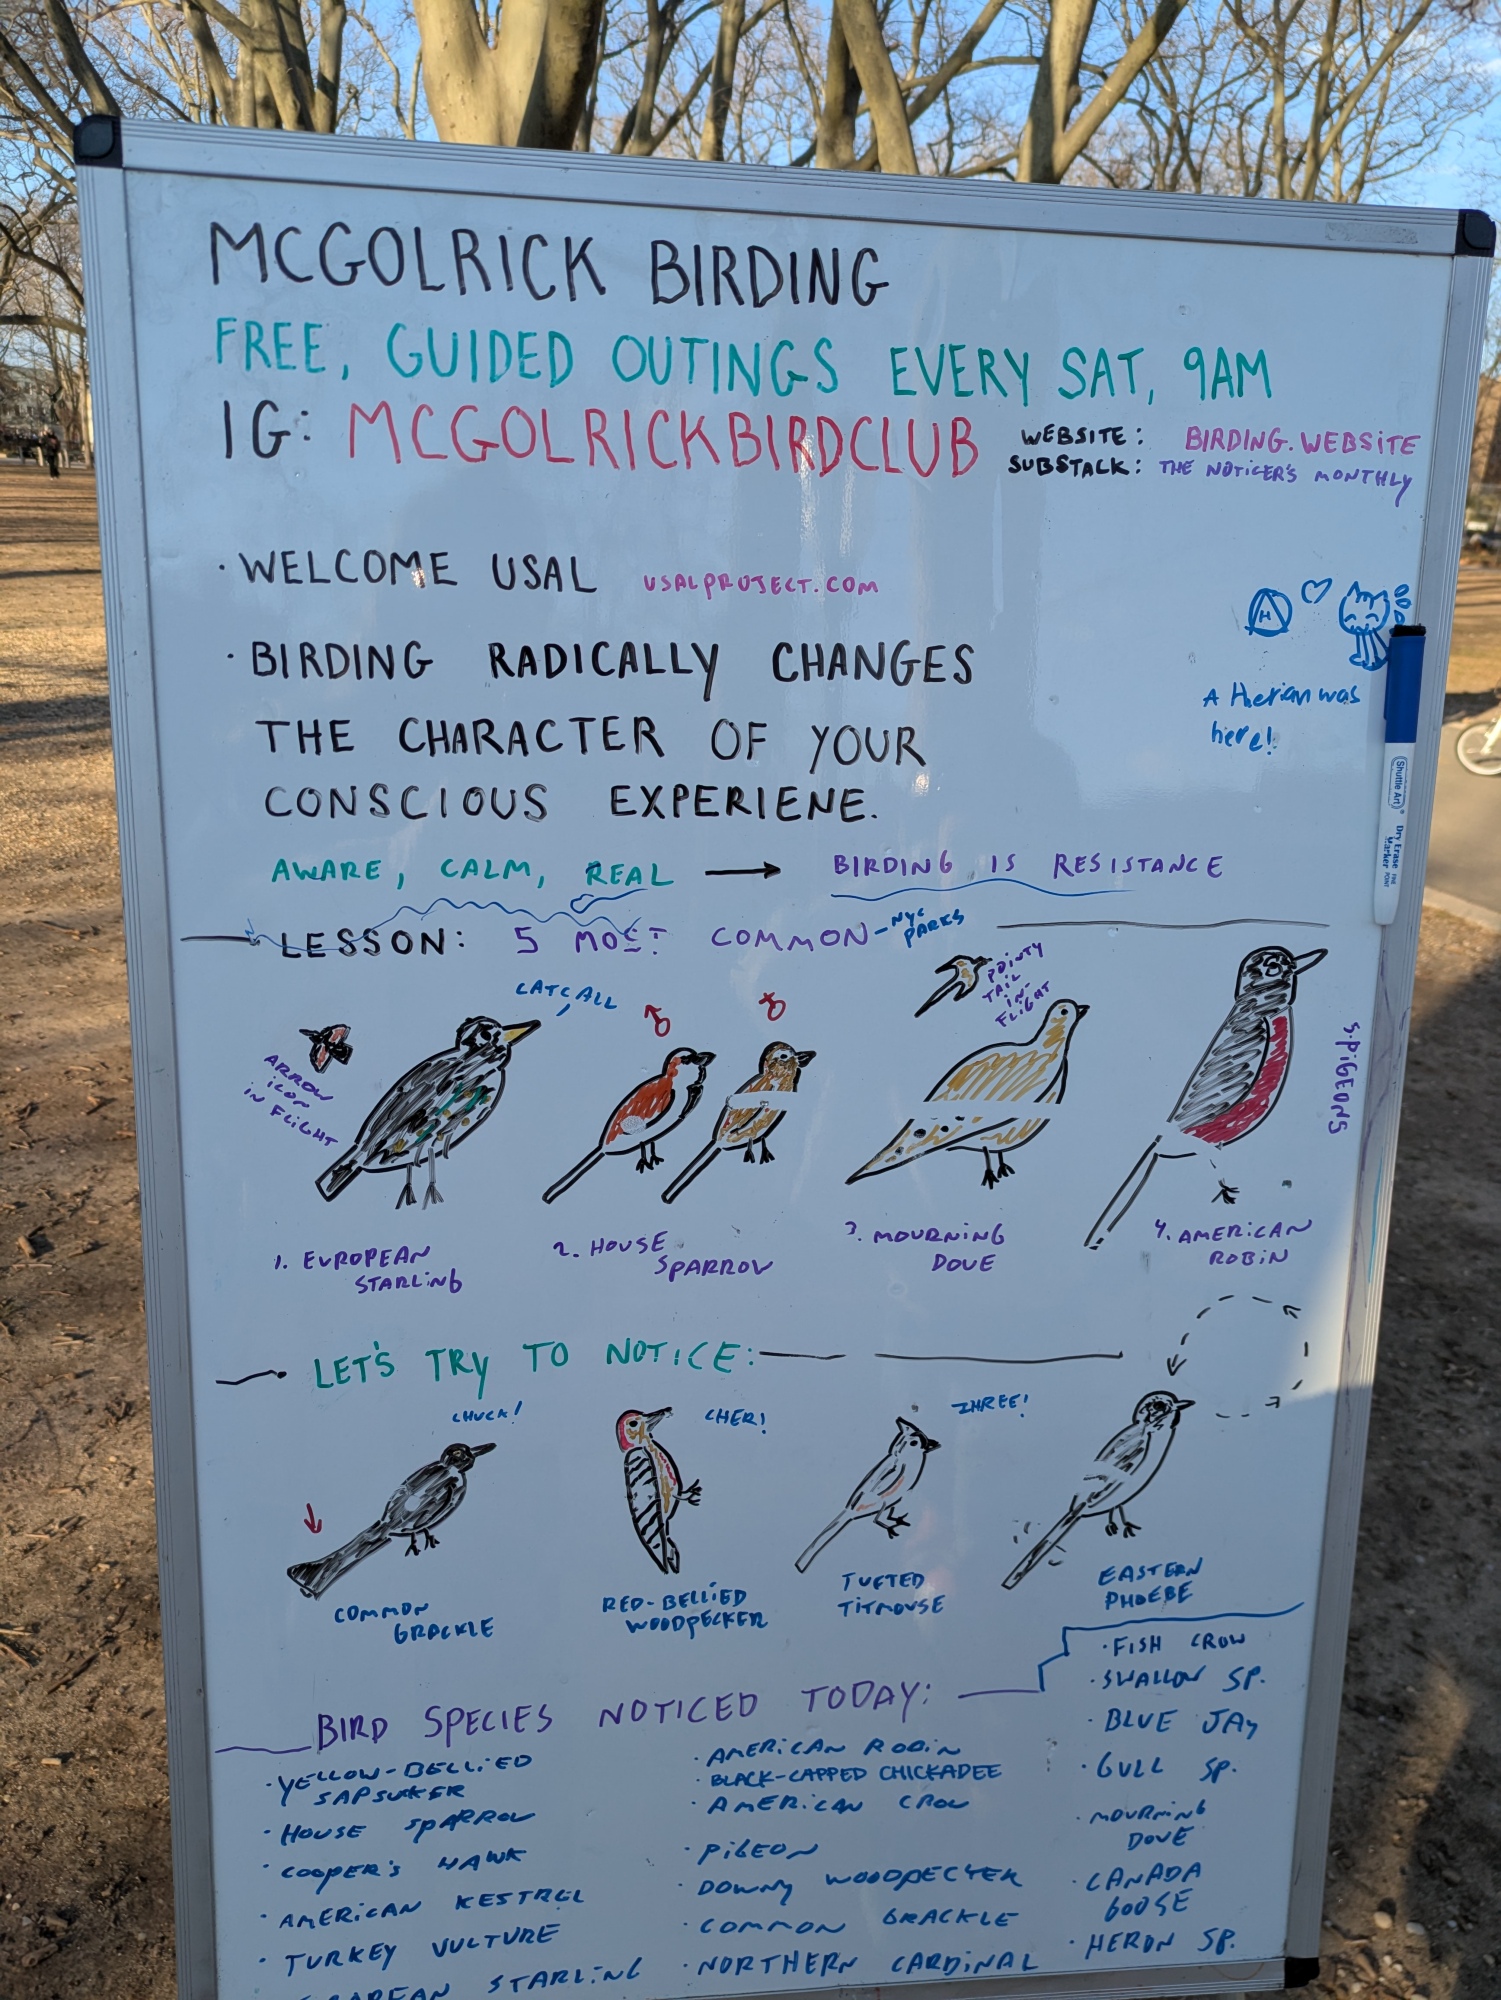 MCGOLRICK BIRDING
FREE, GUIDED OUTINGS EVERY SAT, 9AM
IG: MCGOLRICKBIRDCLUB
WEBSITE: BIRDING.WEBSITE
SUBSTACK: THE NOTICER'S MONTHLY
· WELCOME USAL USALPROJECT.COM
· BIRDING RADICALLY CHANGES
THE CHARACTER OF YOUR
CONSCIOUS EXPERIENE.
A Therian was
here!
Shuttle Art
Dry Erase Marker
AWARE, CALM, REAL → BIRDING IS RESISTANCE
LESSON: 5 MOST COMMON - NYC PARKS
CATCALL
ARROW
ICON
IN FLIGHT
♂
♀
POINTY
TAIL
IN-
FLIGHT
5. PIGEONS
1. EUROPEAN
STARLING
2. HOUSE
SPARROW
3. MOURNING
DOVE
4. AMERICAN
ROBIN
LET'S TRY TO NOTICE:
CHUCK!
CHER!
ZHREE!
COMMON
GRACKLE
RED-BELLIED
WOODPECKER
TUFTED
TITMOUSE
EASTERN
PHOEBE
BIRD SPECIES NOTICED TODAY:
· YELLOW-BELLIED
SAPSUCKER
· HOUSE SPARROW
· COOPER'S HAWK
· AMERICAN KESTREL
· TURKEY VULTURE
STARLING
· AMERICAN ROBIN
· BLACK-CAPPED CHICKADEE
· AMERICAN CROW
· PIGEON
· DOWNY WOODPECKER
· COMMON GRACKLE
· NORTHERN CARDINAL
· FISH CROW
· SWALLOW SP.
· BLUE JAY
· GULL SP.
· MOURNING
DOVE
· CANADA
GOOSE
· HERON SP.